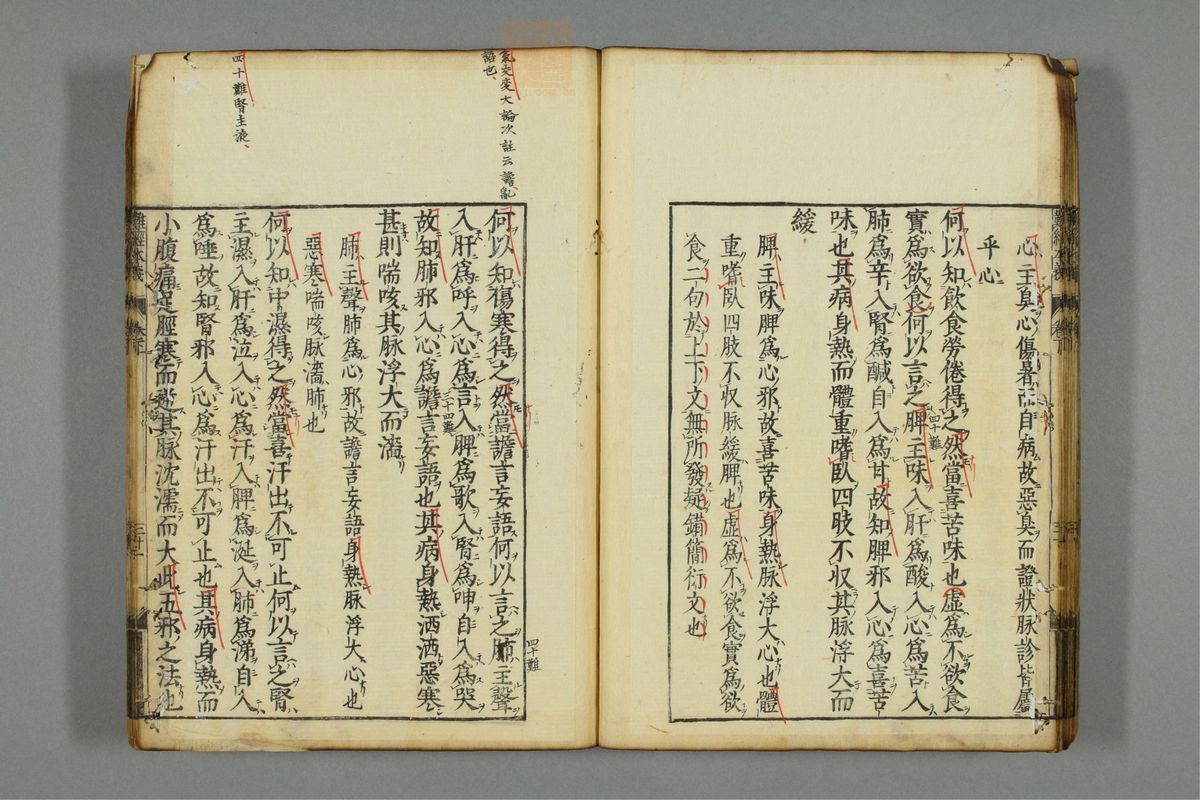 心主臭心傷暑而自病故惡臭而證狀脉診皆屬
乎心
何以知飲食勞倦得之然當喜苦味也虛爲不欲食
實爲欲食何以言之脾主味入肝爲酸入心爲苦入
肺爲辛入腎爲鹹自入爲甘故知脾邪入心爲喜苦
味也其病身熱而體重嗜臥四肢不収其脉浮大而
緩
脾主味脾爲心邪故喜苦味身熱脉浮大心也體
重嗜臥四肢不収脉緩脾也虛爲不欲食實爲欲
食二句於上下文無所發疑錯簡衍文也
四十難
氣交変大論次註云譫乱
語也
何以知傷寒得之然當譫言妄語何以言之肺主聲
入肝爲呼入心爲言入脾爲歌入腎爲呻自入爲哭
故知肺邪入心爲譫言妄語也其病身熱洒洒惡寒
甚則喘咳其脉浮大而濇
四十難
三十四難
肺主聲肺爲心邪故譫言妄語身熱脉浮大心也
惡寒喘咳脉濇肺也
四十難腎主液
何以知中濕得之然當喜汗出不可止何以言之腎
主濕入肝爲泣入心爲汗入脾爲涎入肺爲涕自入
爲唾故知腎邪入心爲汗出不可止也其病身熱而
小腹痛足脛寒而逆其脉沈濡而大此五邪之法也